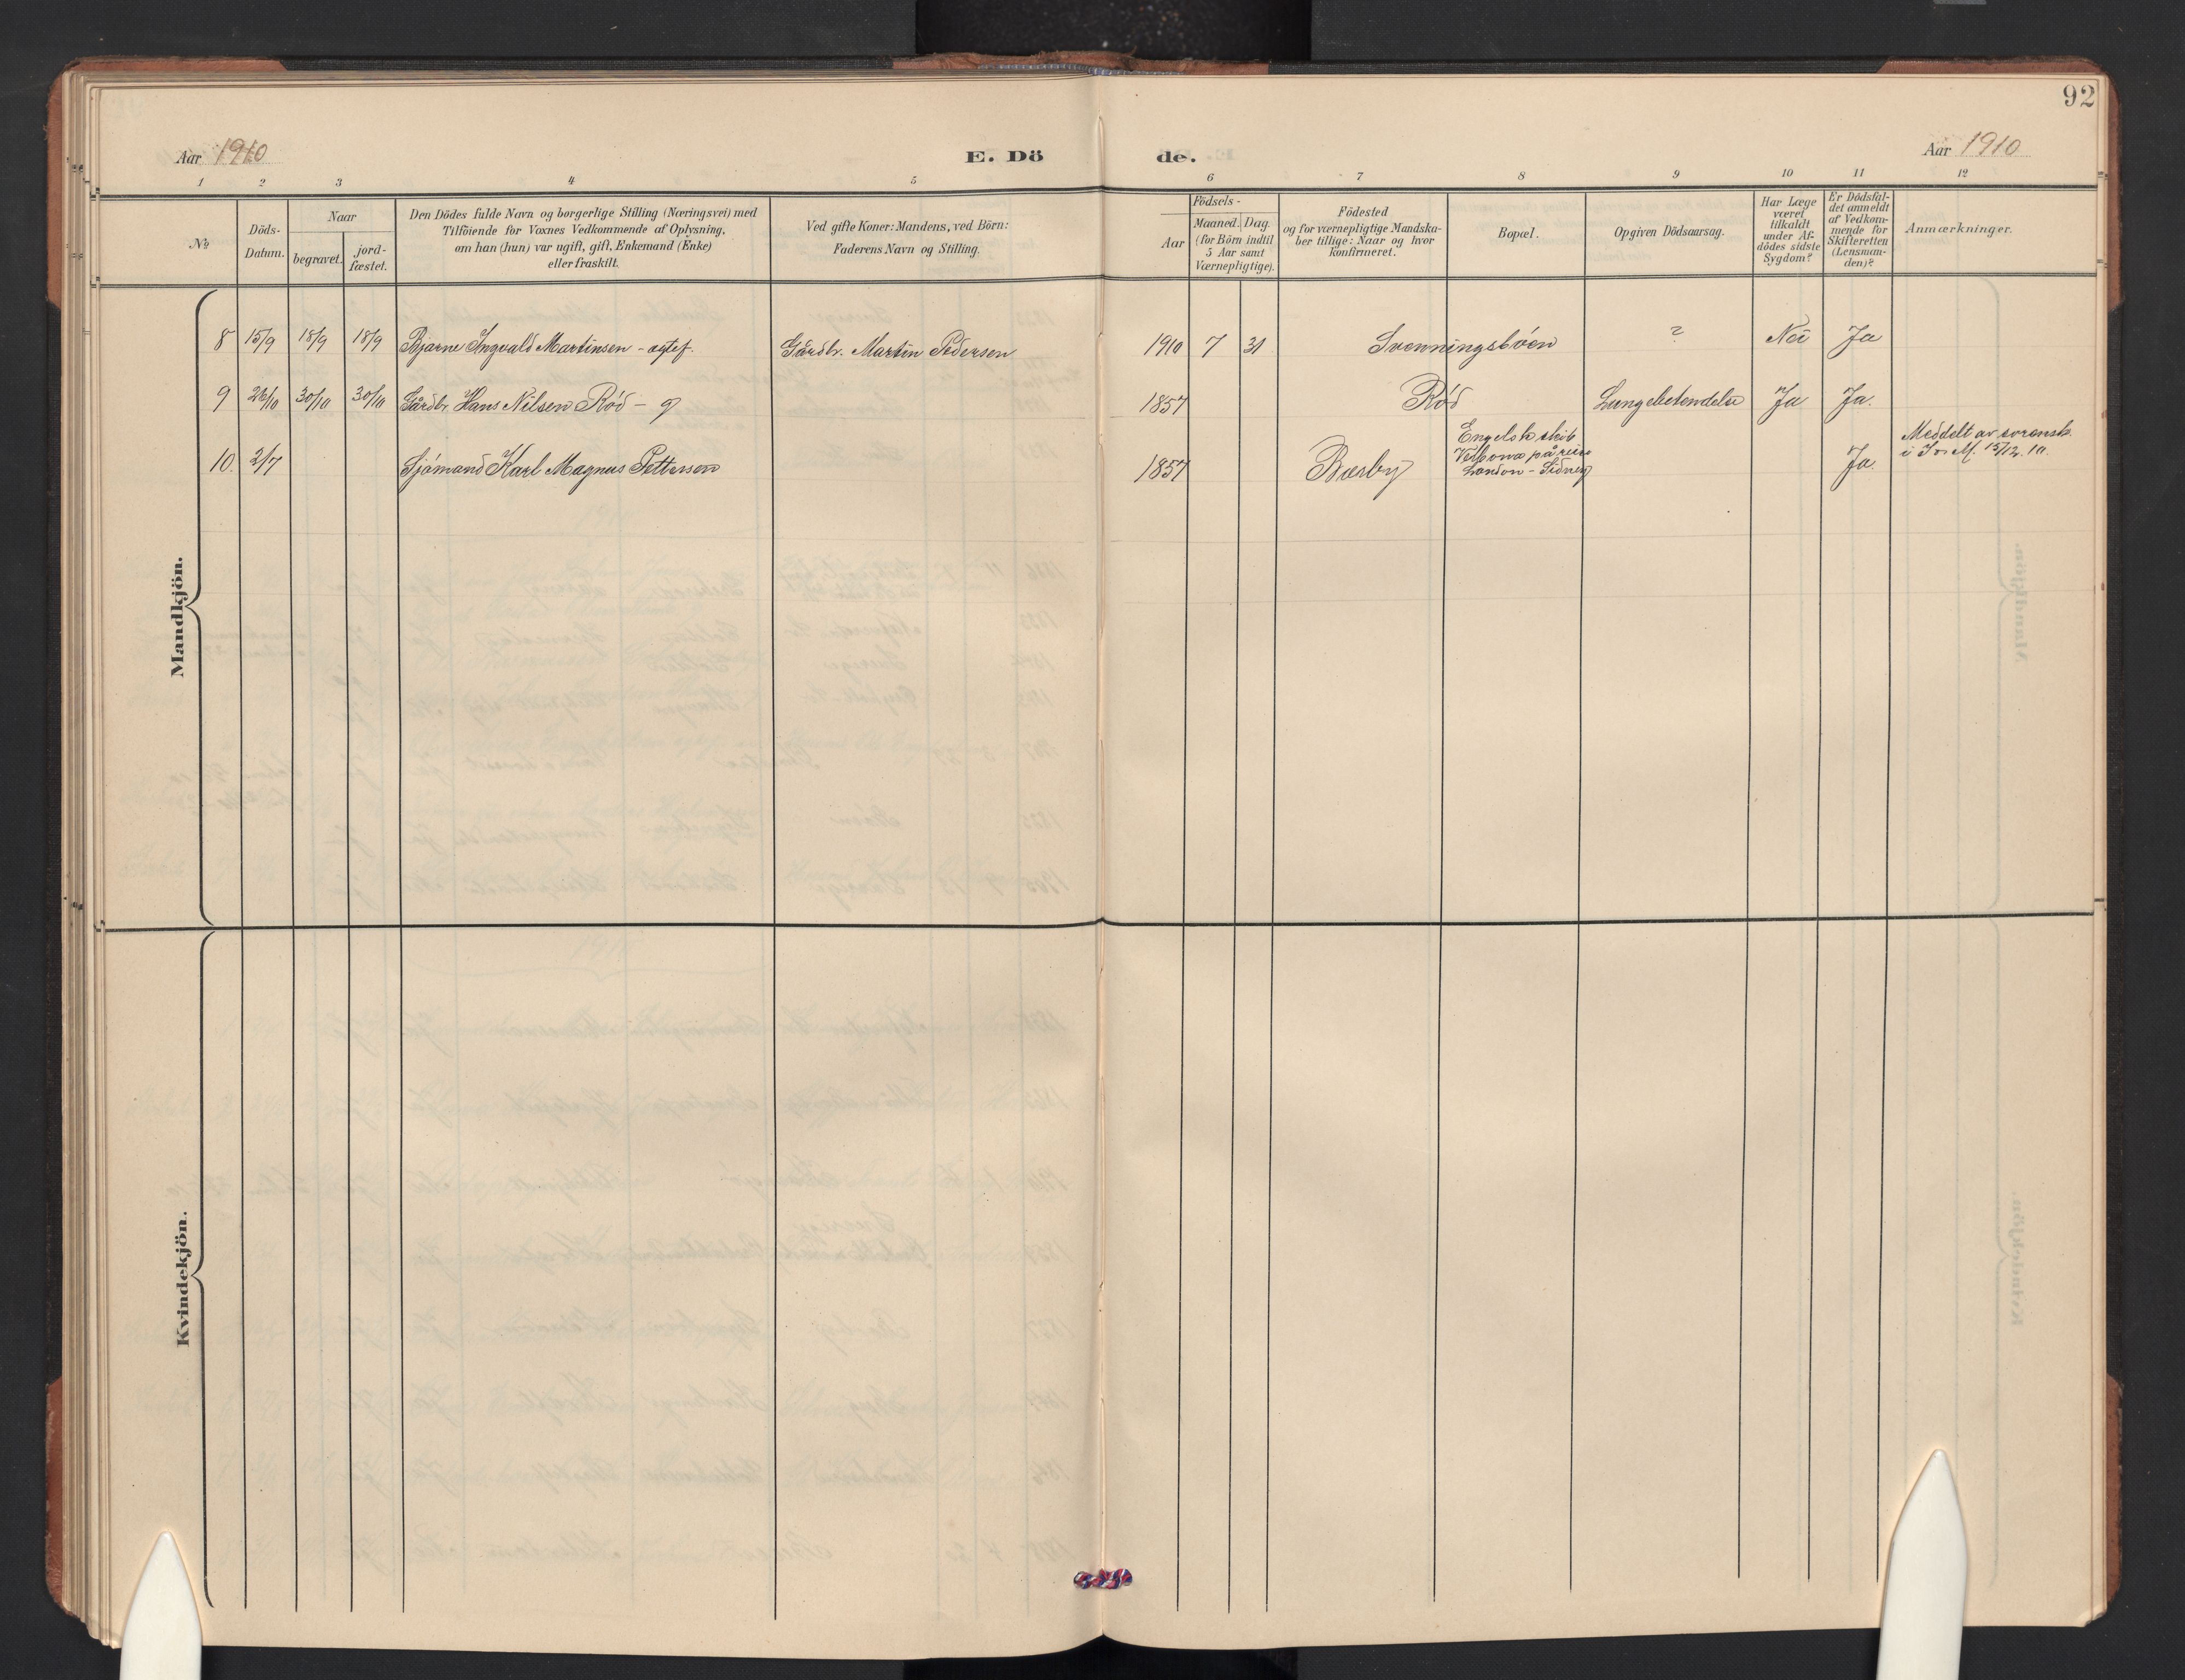 92
Aar 1910
E. Dö
de.
Aar 1910
1 2 3 4 5 6 7 8 9 10 11 12
№
Döds-
Datum.
Naar
begravet.
jord-
fæstet.
Den Dödes fulde Navn og borgerlige Stilling (Næringsvei) med
Tilföiende for Voxnes Vedkommende af Oplysning,
om han (hun) var ugift, gift, Enkemand (Enke)
eller fraskilt.
Ved gifte Koner: Mandens, ved Börn:
Faderens Navn og Stilling.
Födsels-
Aar
Maaned.
Dag.
(for Börn indtil
5 Aar samt
Værnepligtige).
Födested
og for værnepligtige Mandska-
ber tillige: Naar og hvor
konfirmeret.
Bopæl.
Opgiven Dödsaarsag.
Har Læge
været
tilkaldt
under Af-
dödes sidste
Sygdom?
Er Dödsfal-
det anmeldt
af Vedkom-
mende for
Skifteretten
(Lensman-
den)?
Anmærkninger.
Mandkjön.
8 15/9 18/9 18/9 Bjarne Ingvald Martinsen - ægtef. Gårdbr. Martin Pedersen 1910 7 31 Svenningsbøen ? Nei Ja
9 26/10 30/10 30/10 Gårdbr. Hans Nilsen Rød - g 1857 Rød Lungebetendelse Ja Ja.
10. 2/7 Sjømand Karl Magnus Pettersen 1857 Bærby
Engelsk skib
på reise
London - Sidney
Ja.
Meddelt av sorensk.
i I. o. M. 15/12. 10.
Kvindekjön.